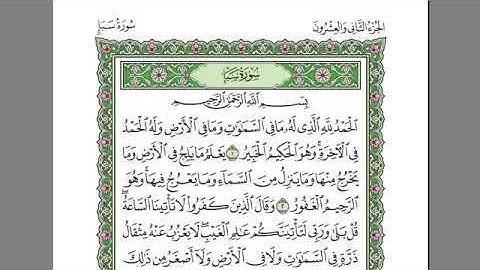 الجزء الثاني والعشرون
سورة سبإ
سورة سبإ
بِسْمِ ٱللَّهِ ٱلرَّحْمَٰنِ ٱلرَّحِيمِ
ٱلْحَمْدُ لِلَّهِ ٱلَّذِى لَهُۥ مَا فِى ٱلسَّمَٰوَٰتِ وَمَا فِى ٱلْأَرْضِ وَلَهُ ٱلْحَمْدُ
فِى ٱلْءَاخِرَةِ ۚ وَهُوَ ٱلْحَكِيمُ ٱلْخَبِيرُ ١ يَعْلَمُ مَا يَلِجُ فِى ٱلْأَرْضِ وَمَا
يَخْرُجُ مِنْهَا وَمَا يَنزِلُ مِنَ ٱلسَّمَآءِ وَمَا يَعْرُجُ فِيهَا ۚ وَهُوَ
ٱلرَّحِيمُ ٱلْغَفُورُ ٢ وَقَالَ ٱلَّذِينَ كَفَرُوا۟ لَا تَأْتِينَا ٱلسَّاعَةُ ۖ
قُلْ بَلَىٰ وَرَبِّى لَتَأْتِيَنَّكُمْ عَٰلِمِ ٱلْغَيْبِ ۖ لَا يَعْزُبُ عَنْهُ مِثْقَالُ
ذَرَّةٍ فِى ٱلسَّمَٰوَٰتِ وَلَا فِى ٱلْأَرْضِ وَلَآ أَصْغَرُ مِن ذَٰلِكَ